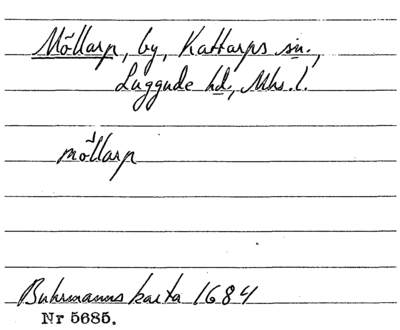 Möllarp, by, Kattarps sn.,
Luggude hd., Mhs. l.
möllarp
Buhrmanns karta 1684
Nr 5685.